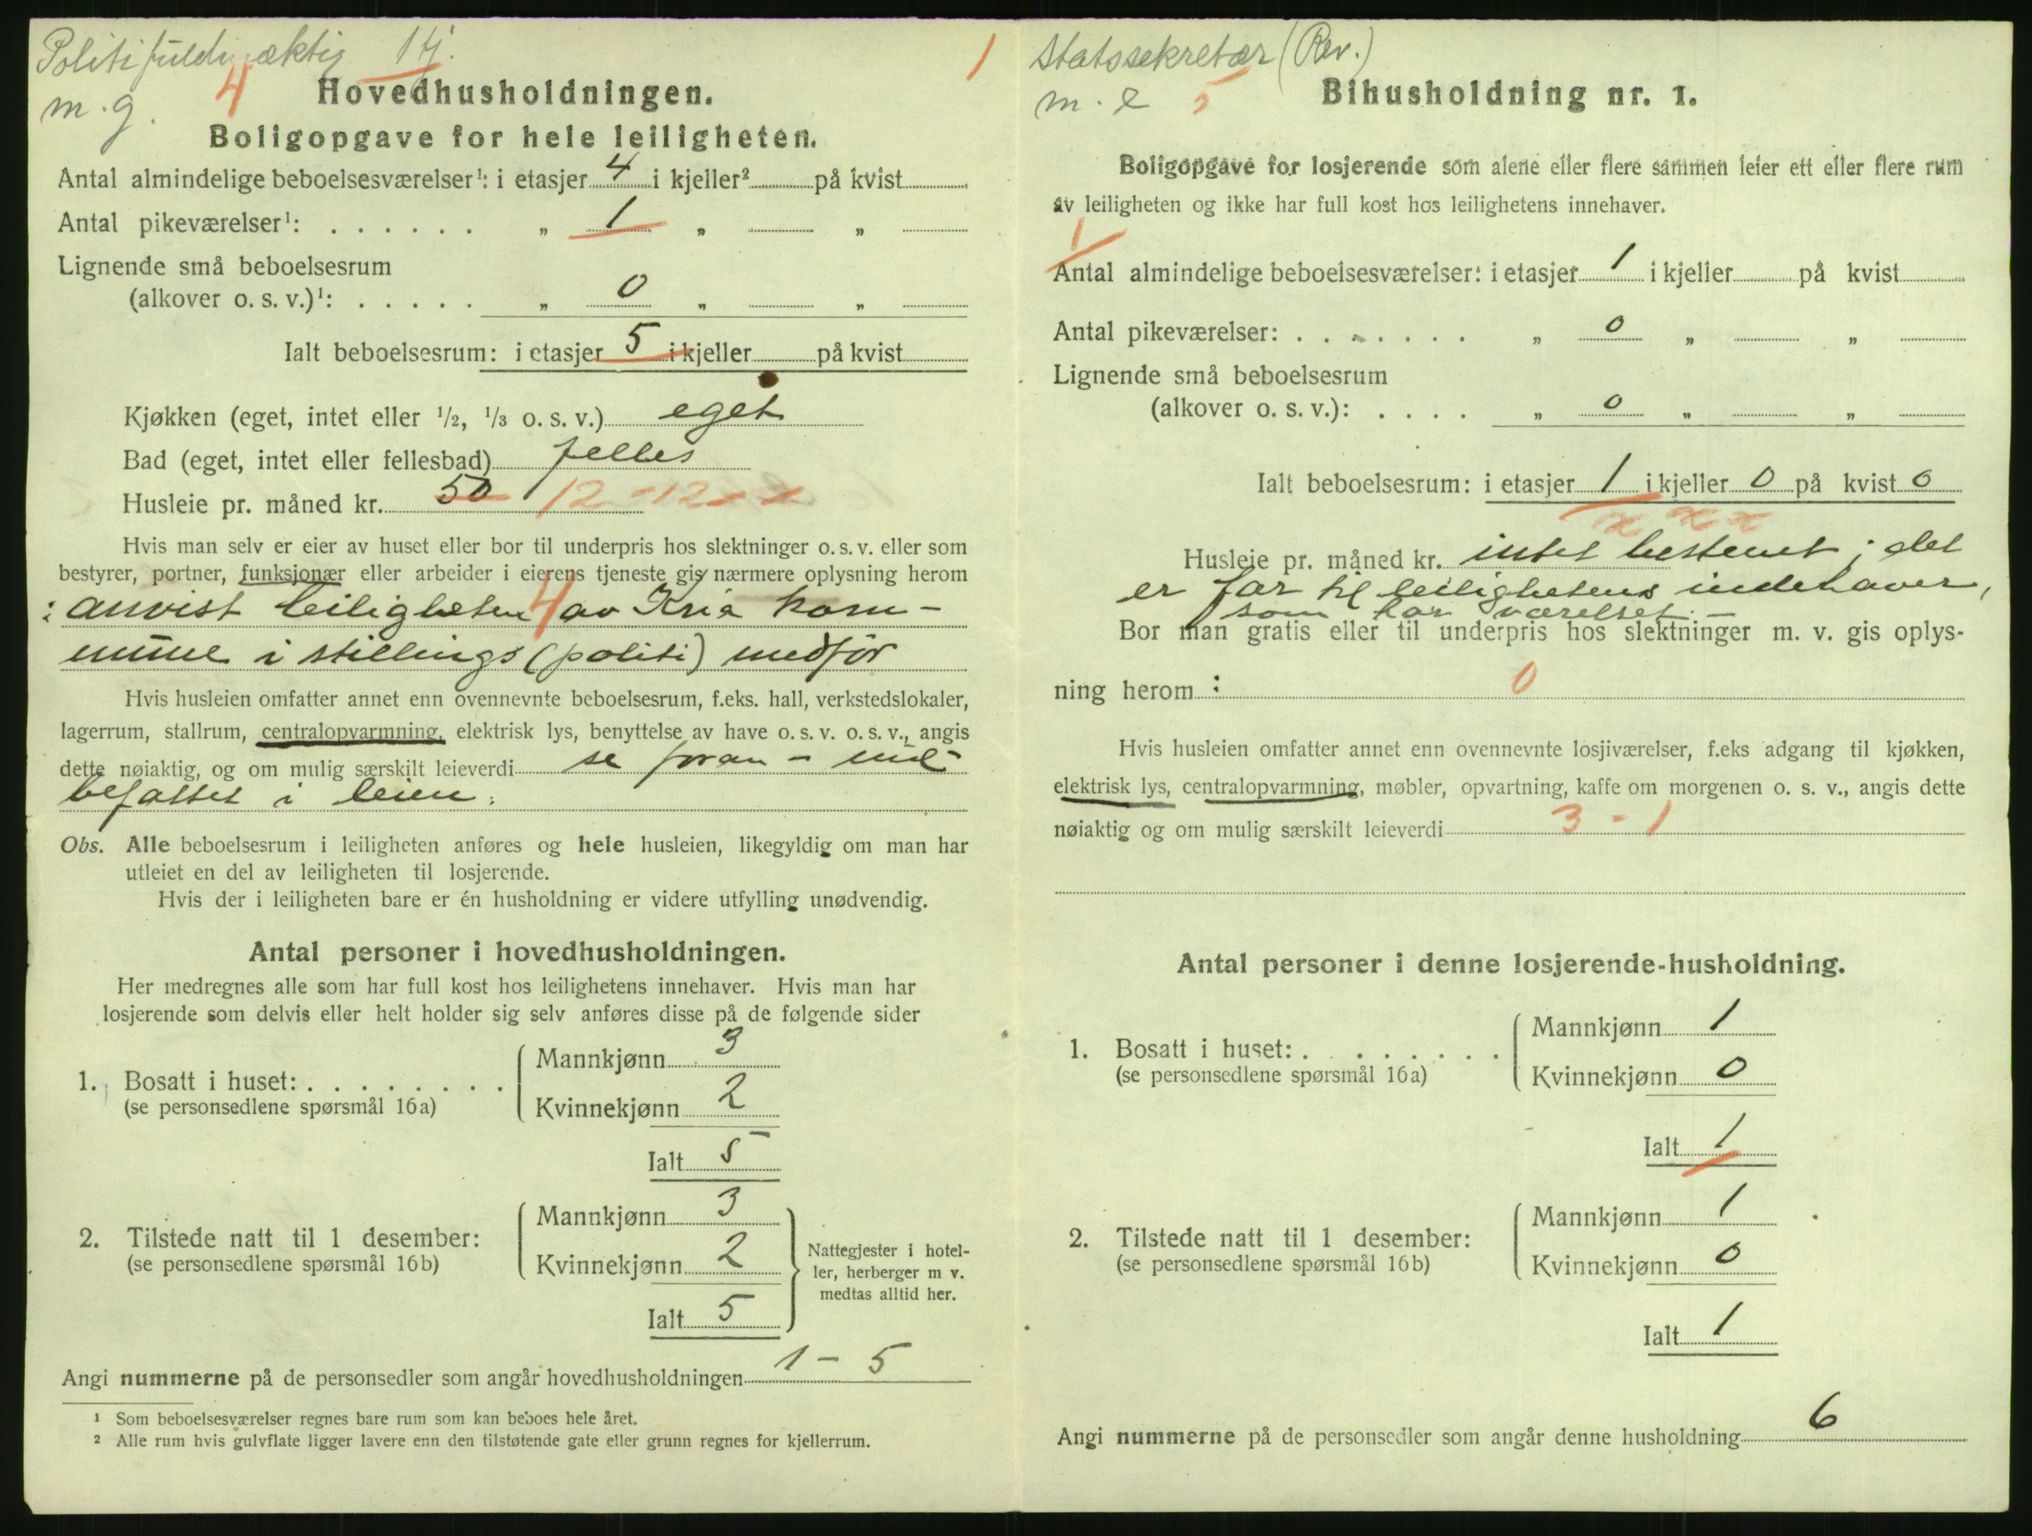 Politifuldmæktig 1 kj.
m. g. 4
Hovedhusholdningen.
Boligopgave for hele leiligheten.
Antal almindelige beboelsesværelser¹: i etasjer 4 i kjeller² på kvist
Antal pikeværelser¹: . . . . . . „ 1 „ „
Lignende små beboelsesrum
(alkover o. s. v.)¹: . . . . . „ 0 „ „
Ialt beboelsesrum: i etasjer 5 i kjeller på kvist
Kjøkken (eget, intet eller 1/2, 1/3 o. s. v.) eget
Bad (eget, intet eller fellesbad) felles
Husleie pr. måned kr. 50 12 - 12 x x
Hvis man selv er eier av huset eller bor til underpris hos slektninger o. s. v. eller som
bestyrer, portner, funksjonær eller arbeider i eierens tjeneste gis nærmere oplysning herom
: anvist leiligheten 4 av Kria kom-
mune i stillings (politi) medfør
Hvis husleien omfatter annet enn ovennevnte beboelsesrum, f.eks. hall, verkstedslokaler,
lagerrum, stallrum, centralopvarmning, elektrisk lys, benyttelse av have o. s. v. o. s. v., angis
dette nøiaktig, og om mulig særskilt leieverdi se foran - ind-
befattet i leien.
Obs. Alle beboelsesrum i leiligheten anføres og hele husleien, likegyldig om man har
utleiet en del av leiligheten til losjerende.
Hvis der i leiligheten bare er én husholdning er videre utfylling unødvendig.
Antal personer i hovedhusholdningen.
Her medregnes alle som har full kost hos leilighetens innehaver. Hvis man har
losjerende som delvis eller helt holder sig selv anføres disse på de følgende sider
Mannkjønn 3
1. Bosatt i huset: . . . . . . . .
(se personsedlene spørsmål 16a)
Kvinnekjønn 2
Ialt 5
Mannkjønn 3
2. Tilstede natt til 1 desember:
(se personsedlene spørsmål 16b)
Kvinnekjønn 2
Ialt 5
Nattegjester i hotel-
ler, herberger m v.
medtas alltid her.
Angi nummerne på de personsedler som angår hovedhusholdningen 1 - 5
¹ Som beboelsesværelser regnes bare rum som kan beboes hele året.
² Alle rum hvis gulvflate ligger lavere enn den tilstøtende gate eller grunn regnes for kjellerrum.
1 Statssekretær (Rev.)
m. e 5
Bihusholdning nr. 1.
Boligopgave for losjerende som alene eller flere sammen leier ett eller flere rum
av leiligheten og ikke har full kost hos leilighetens innehaver.
1
Antal almindelige beboelsesværelser: i etasjer 1 i kjeller på kvist
Antal pikeværelser: . . . . . . . „ 0 „ „
Lignende små beboelsesrum
(alkover o. s. v.): . . . . „ 0 „ „
Ialt beboelsesrum: i etasjer 1 i kjeller 0 på kvist 0
x x x
Husleie pr. måned kr. intet bestemt; det
er far til leilighetens indehaver,
som har værelset. -
Bor man gratis eller til underpris hos slektninger m. v. gis oplys-
ning herom : 0
Hvis husleien omfatter annet enn ovennevnte losjiværelser, f.eks adgang til kjøkken,
elektrisk lys, centralopvarmning, møbler, opvartning, kaffe om morgenen o. s. v., angis dette
nøiaktig og om mulig særskilt leieverdi 3 - 1
Antal personer i denne losjerende-husholdning.
Mannkjønn 1
1. Bosatt i huset: . . . . . . . .
(se personsedlene spørsmål 16a)
Kvinnekjønn 0
Ialt 1
Mannkjønn 1
2. Tilstede natt til 1 desember:
(se personsedlene spørsmål 16b)
Kvinnekjønn 0
Ialt 1
Angi nummerne på de personsedler som angår denne husholdning 6